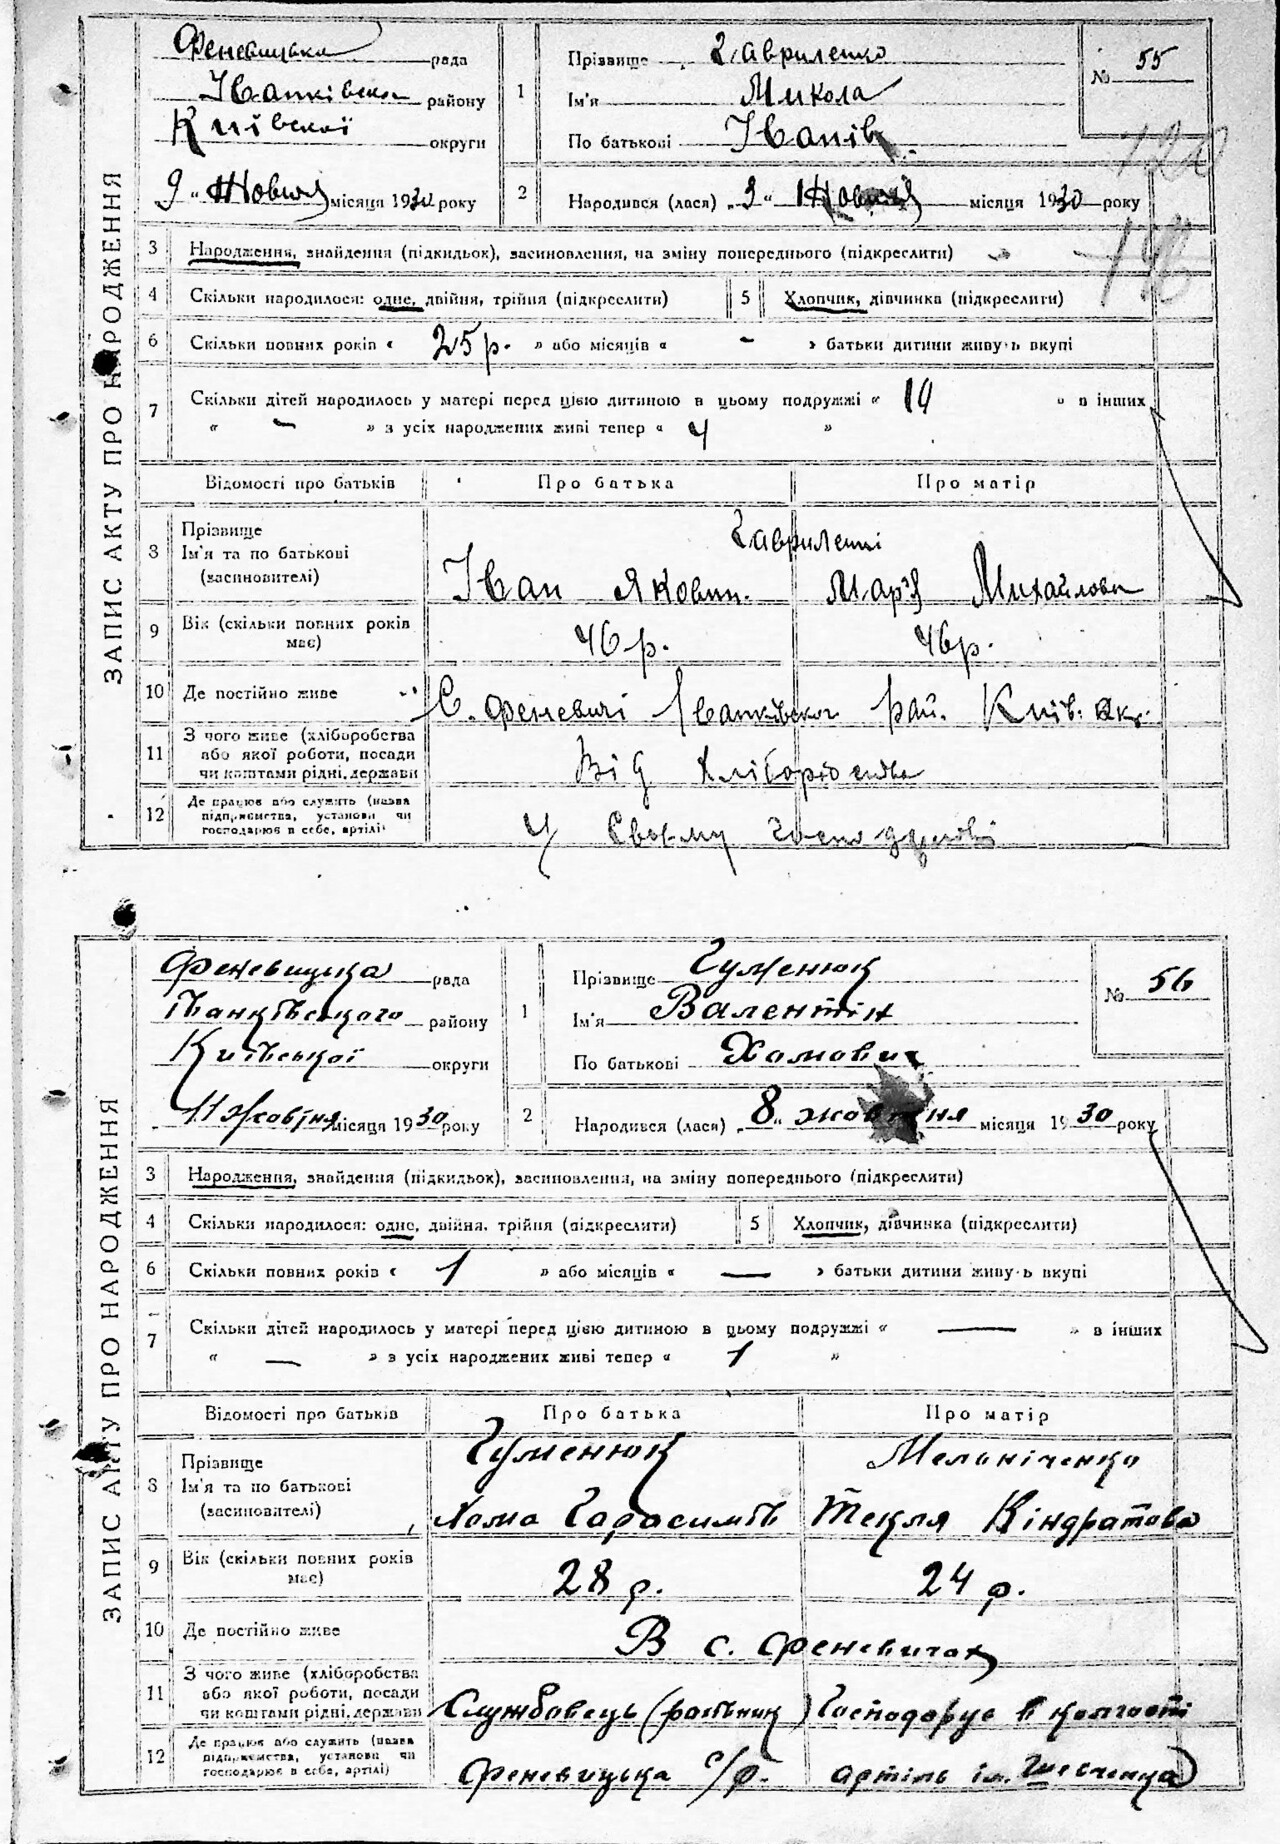 ЗАПИС АКТУ ПРО НАРОДЖЕННЯ
Феневицька рада
Іванківськ району
Київської округи
9 „ Жовтня місяця 1930 року
1 Прізвище Гавриленко
Ім'я Микола
По батькові Іванів
№ 55
2 Народився (лася) „ 9 „ Жовтня місяця 1930 року
3 Народження, знайдення (підкидьок), засиновлення, на зміну попереднього (підкреслити)
4 Скільки народилося: одне, двійня, трійня (підкреслити) 5 Хлопчик, дівчинка (підкреслити)
6 Скільки повних років « 25 р. » або місяців « - » батьки дитини живуть вкупі
7 Скільки дітей народилось у матері перед цією дитиною в цьому подружжі « 14 » в інших
« - » з усіх народжених живі тепер « 4 »
Відомості про батьків Про батька Про матір
8 Прізвище Ім'я та по батькові (засиновителі)
Гавриленкі
Іван Якович. Мар'я Михайлова
9 Вік (скільки повних років має) 46 р. 46 р.
10 Де постійно живе С. Феневичі Іванківськог рай. Київ. окр.
11 З чого живе (хліборобства або якої роботи, посади чи коштами рідні, держави Від хліборобства
12 Де працює або служить (назва підприємства, установи чи господарює в себе, артілі) У Своєму господарстві
ЗАПИС АКТУ ПРО НАРОДЖЕННЯ
Феневицька рада
Іванківського району
Київської округи
„ 11 Жовтня місяця 1930 року
1 Прізвище Гуменюк
Ім'я Валентін
По батькові Хомович
№ 56
2 Народився (лася) „ 8 „ жовтня місяця 1930 року
3 Народження, знайдення (підкидьок), засиновлення, на зміну попереднього (підкреслити)
4 Скільки народилося: одне, двійня, трійня (підкреслити) 5 Хлопчик, дівчинка (підкреслити)
6 Скільки повних років « 1 » або місяців « — » батьки дитини живуть вкупі
7 Скільки дітей народилось у матері перед цією дитиною в цьому подружжі « — » в інших
« — » з усіх народжених живі тепер « 1 »
Відомості про батьків Про батька Про матір
8 Прізвище Ім'я та по батькові (засиновителі)
Гуменюк Мельніченко
Хома Гарасимів Текля Кіндратова
9 Вік (скільки повних років має) 28 р. 24 р.
10 Де постійно живе В с. Феневичах
11 З чого живе (хліборобства або якої роботи, посади чи коштами рідні, держави Службовець Господарує в колгоспі
12 Де працює або служить (назва підприємства, установи чи господарює в себе, артілі) Феневицька с/р. артіль ім. Шевченка)